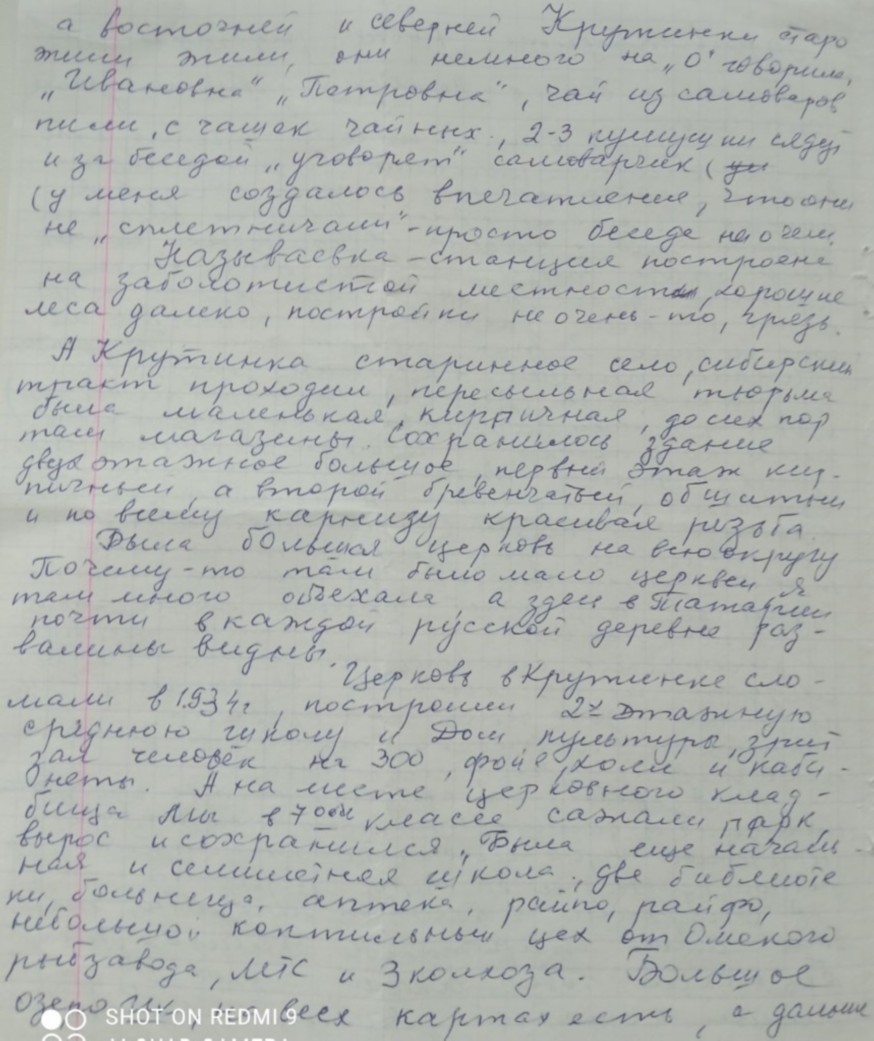 а восточней и северней Крутинки старо
жили жили, они немного на „О" говорили,
„Ивановна" „Петровна", чай из самоваров
пили, с чашек чайных, 2-3 кумушки сядут
и за беседой „уговорят" самоварчик (
(у меня создалось впечатление, что они
не „сплетничали" - просто беседа на очем.
Называевка - станция построена
на заболотистой местности, хорошие
леса далеко, постройки не очень-то, грязь.
А Крутинка старинное село, сибирский
тракт проходил, пересыльная тюрьма
была маленькая, кирпичная, до сих пор
там магазины. Сохранилось здание
двухэтажное большое, первый этаж кир-
пичный, а второй бревенчатый, обшитый
и по всему карнизу красивая резьба.
Была большая церковь на всю округу
Почему-то там было мало церквей я
там много объехала а здесь в Татарии
почти в каждой русской деревне раз-
валины видны.
Церковь в Крутинке сло-
мали в 1934г, построили 2х этажную
среднюю школу и Дом культуры, зрит
зал человек на 300, фойе, холл и каби-
неты. А на месте церковного клад-
бища мы в 7ом классе сажали парк,
вырос и сохранился. Была еще началь-
ная и семилетняя школа, две библиоте
ки, больница, аптека, райпо, райфо,
небольшой коптильный цех от Омского
рыбзавода, МТС и 3 колхоза. Большое
озеро Ик, на всех картах есть, а дальше
SHOT ON REDMI 9
AI QUAD CAMERA